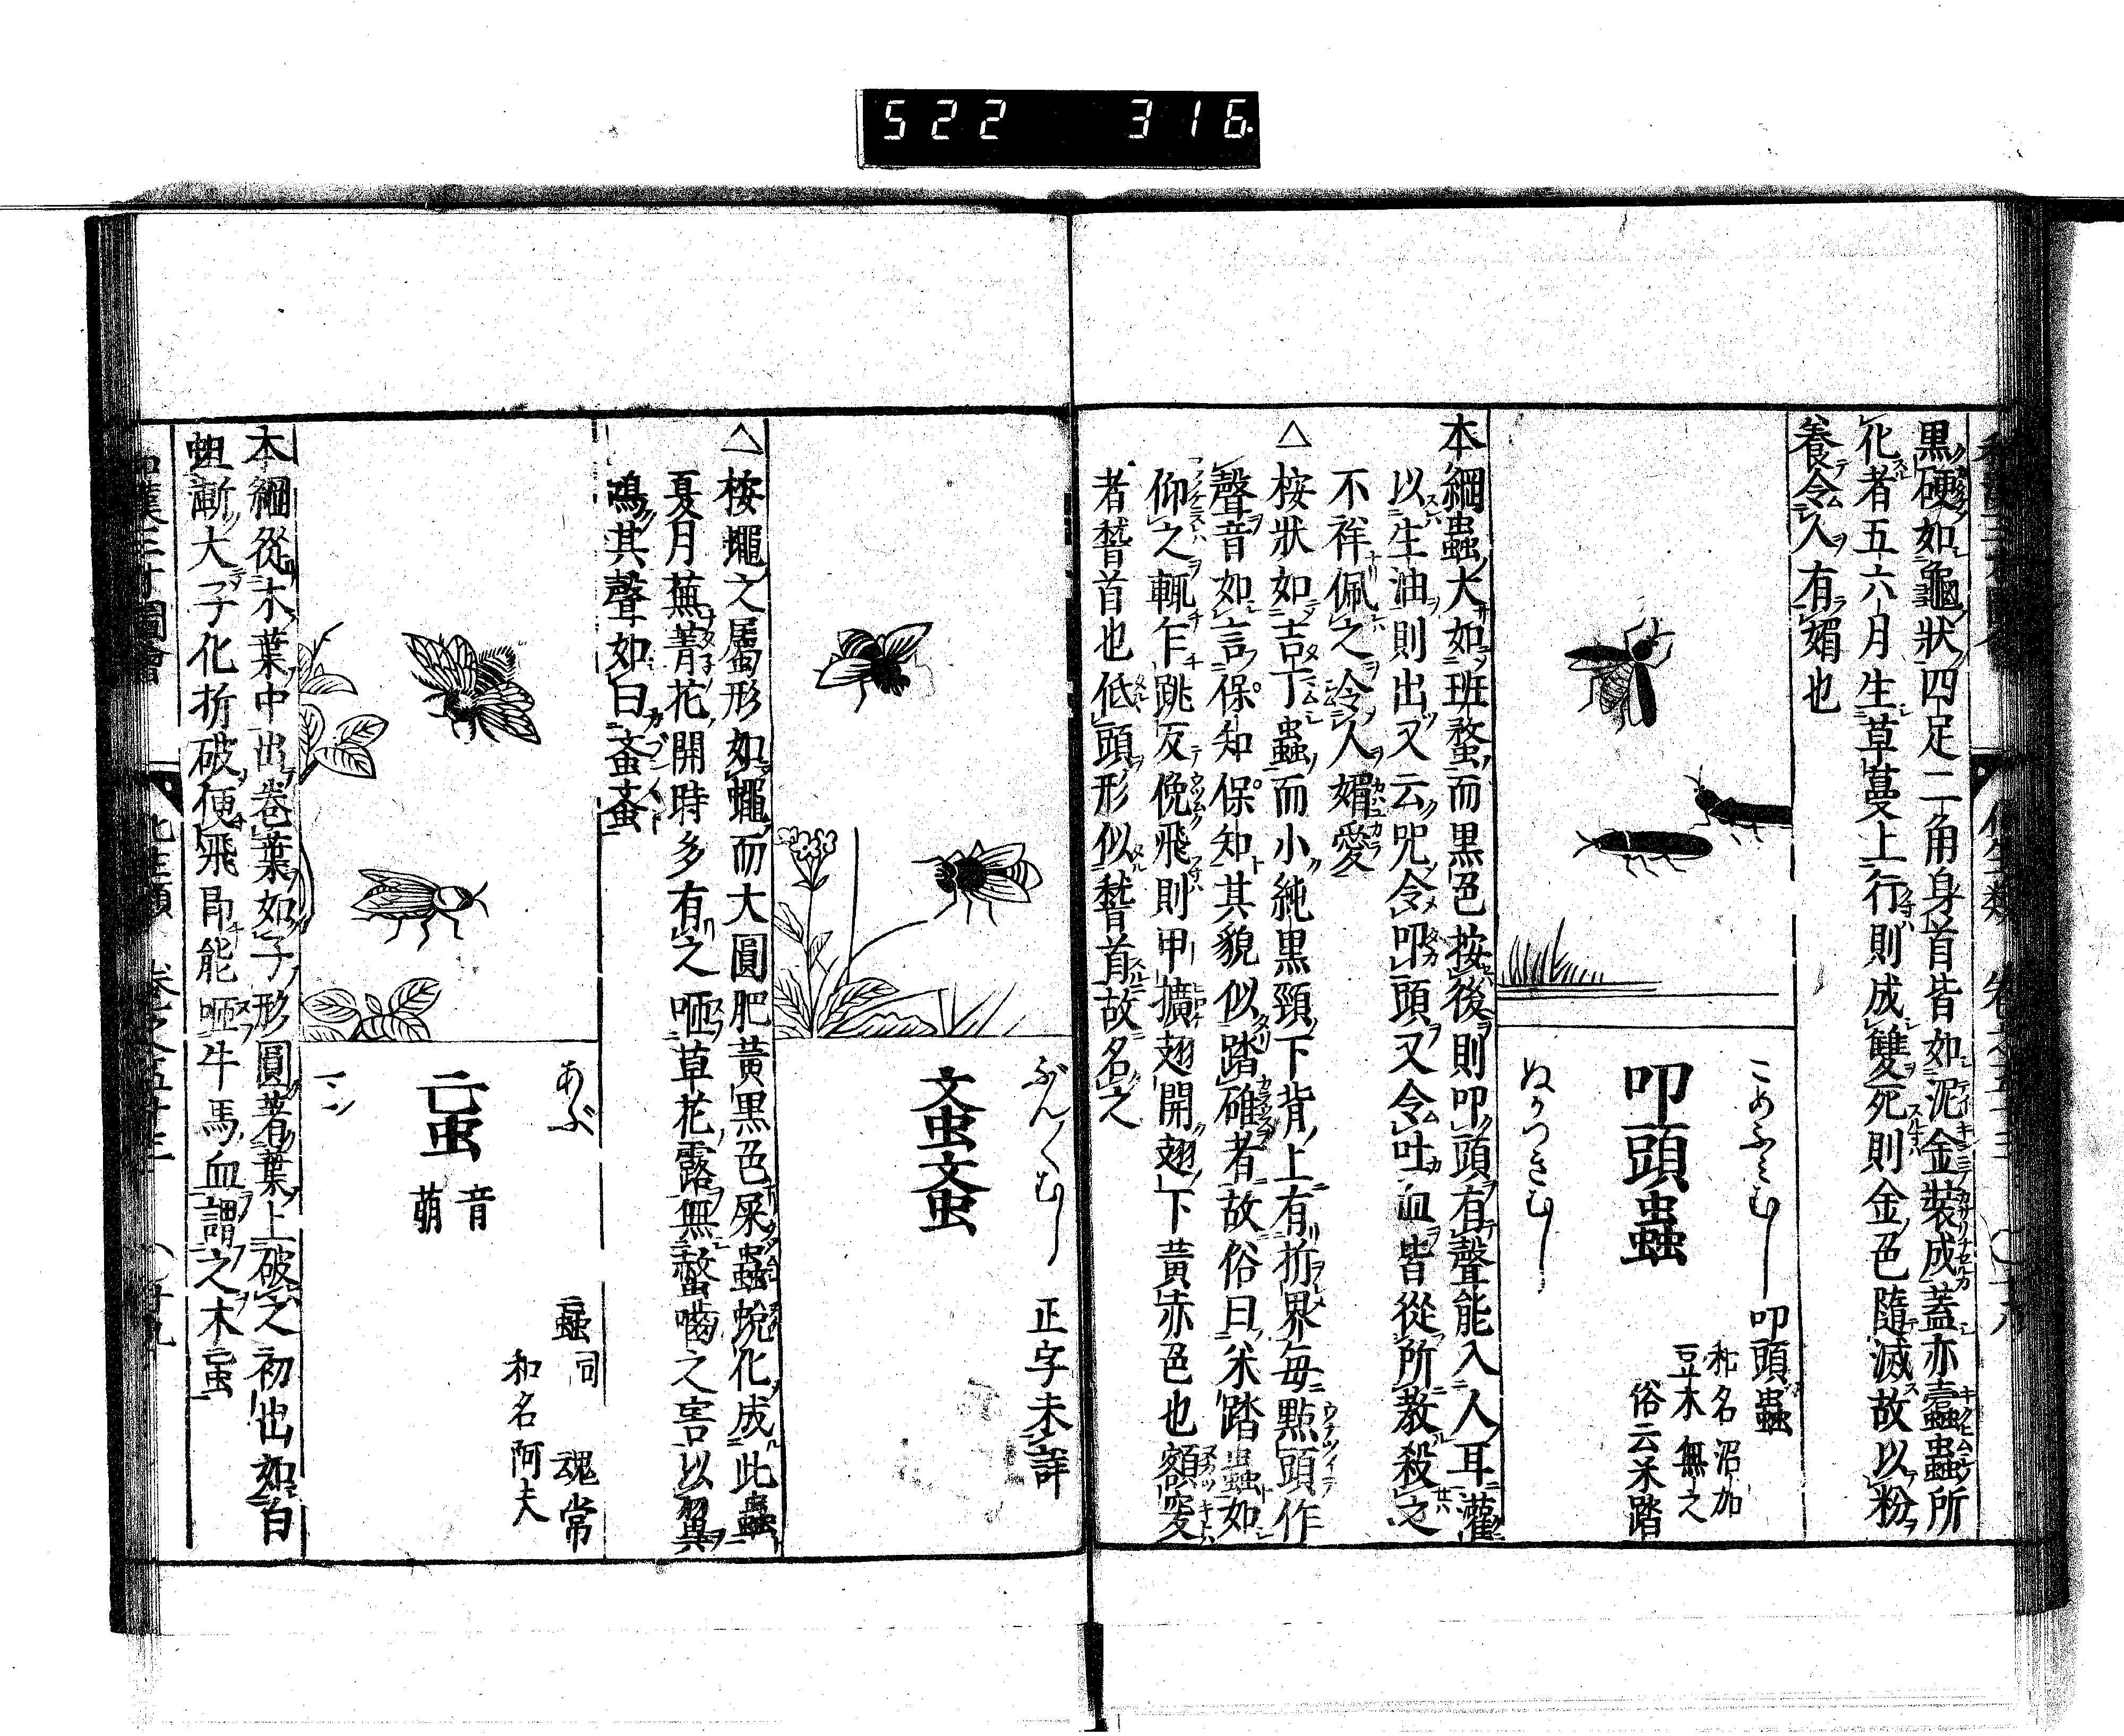 522 316.
黒硬如龜狀四足二角身首皆如泥金裝成蓋亦蠧蟲所
化者五六月生草蔓上行則成雙死則金色隨滅故以粉
養令人有媚也
こめふみむし
叩頭蟲
叩頭蟲
和名沼加
豆木無之
俗云米踏
ぬかつきむし
本綱蟲大如班蝥而黒色按後則叩頭有聲能入人耳灌
以生油則出又云咒令叩頭又令吐血皆從所教殺之
不祥佩之令人媚愛
△按狀如吉丁蟲而小純黒頸下背上有折界毎點頭作
聲音如言保知保知其貌似踏碓者故俗曰米踏蟲如
仰之輒乍跳反俛飛則甲擴翅開翅下黃赤色也額突
者䭫首也低頭形似䭫首故名之
ぶん〱むし
正字未詳
蚉蚉
△按蠅之屬形如蠅而大圓肥黃黒色屎蟲蛻化成此蟲
夏月蕪菁花開時多有之咂草花露無螫噛之害以翼
鳴其聲如曰蚉蚉
あぶ
蝱同
魂常
和名阿夫
䖟
音萌
本綱從木葉中出卷葉如子形圓著葉上破之初出如白
蛆漸大子化拆破便飛即能咂牛馬血謂之木䖟